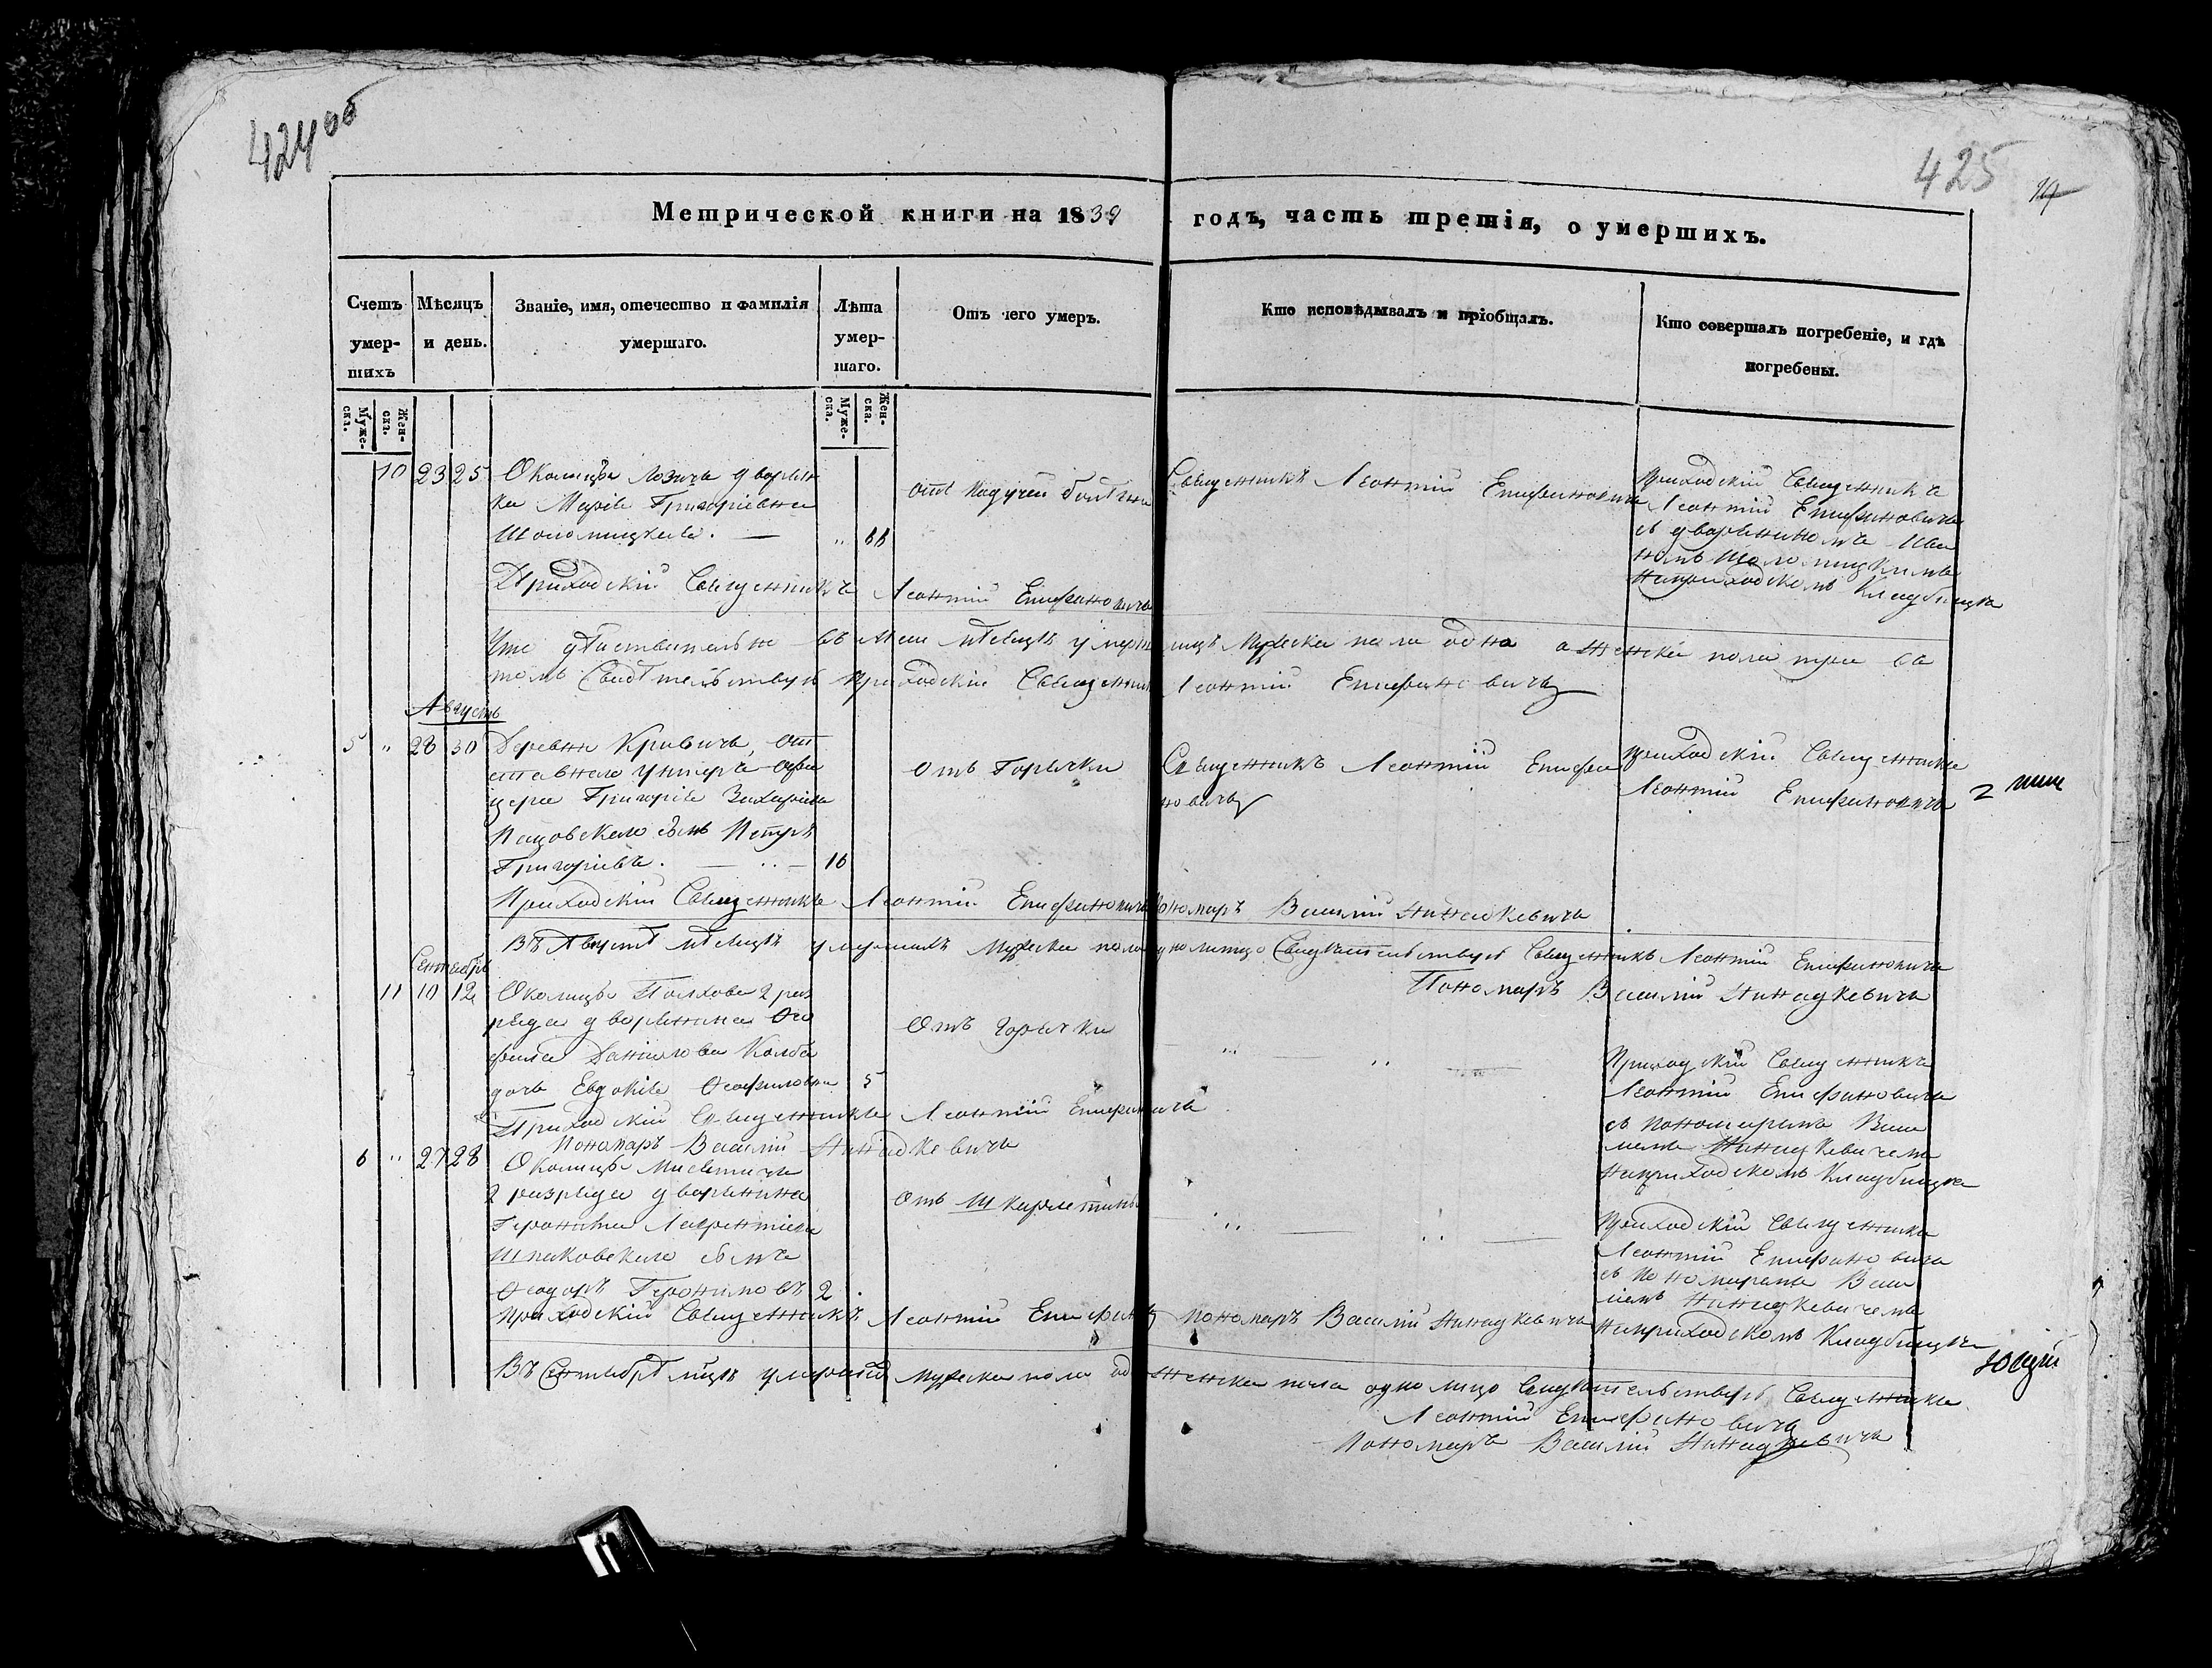 424 об
425
Метрической книги на 1839 годъ, часть третія, о умершихъ.
Счетъ умер- шихъ
Мѣсяцъ и день.
Званіе, имя, отечество и фамилія умершаго.
Лѣта умер- шаго.
Отъ чего умеръ.
Кто исповѣдывалъ и пріобщалъ.
Кто совершалъ погребеніе, и гдѣ погребены.
Муже- ска.
Жен- ска.
Муже- ска.
Жен- ска.
10 23 25 Околицы Лозича дворян
ка Марія Григоріевна
Шоломицкая. — „ 66
отъ падучей болѣзни
Священникъ Леонтій Епифановичъ
Приходскій Священникъ
Леонтій Епифановичъ
съ дворяниномъ Ива
номъ Шоломицкимъ
наприходскомъ Кладбищѣ
Приходскій Священникъ Леонтій Епифановичъ
Что дѣйствительно въ мѣсяцѣ умершихъ мужеска пола одно а женска пола три въ
томъ Свидѣтельствуя Приходскій Священникъ Леонтій Епифановичъ
Августъ
5 „ 28 30 Деревни Кривича, от
ставнаго унтеръ-офи
цера Григорія Захаріева
сынъ Петръ
Григоріевъ. — 16
Отъ Горячки
Священникъ Леонтій Епифа
новичъ
Приходскій Священникъ
Леонтій Епифановичъ
2
Приходскій Священникъ Леонтій Епифановичъ Пономарь Василій
Въ Августѣ мѣсяцѣ умершихъ мужеска пола одно лицо Свидѣтельствуя Священникъ Леонтій Епифановичъ
Пономарь Василій
Сентябрь
11 10 12 Околицы 2 раз
ряда дворянина Ѳео
фила Данилова
дочь Евдокія Ѳеофилова 5
Отъ горячки
Приходскій Священникъ
Леонтій Епифановичъ
съ пономаремъ Васи
ліемъ
наприходскомъ Кладбищѣ
Приходскій Священникъ Леонтій Епифановичъ
Пономарь Василій
6 „ 27 28 Околицы
2 разряда дворянина
Геронима Лаврентіева
Шпаковскаго сынъ
Ѳеодоръ Геронимовъ 2
Отъ Шкарлатины
Приходскій Священникъ
Леонтій Епифановичъ
съ пономаремъ Васи
ліемъ
наприходскомъ Кладбищѣ
Приходскій Священникъ Леонтій Епифановичъ пономарь Василій
Въ Сентябрѣ мцѣ умершихъ мужеска пола од женска пола одно лицо Свидѣтельствуя Священникъ
Леонтій Епифановичъ
Пономарь Василій